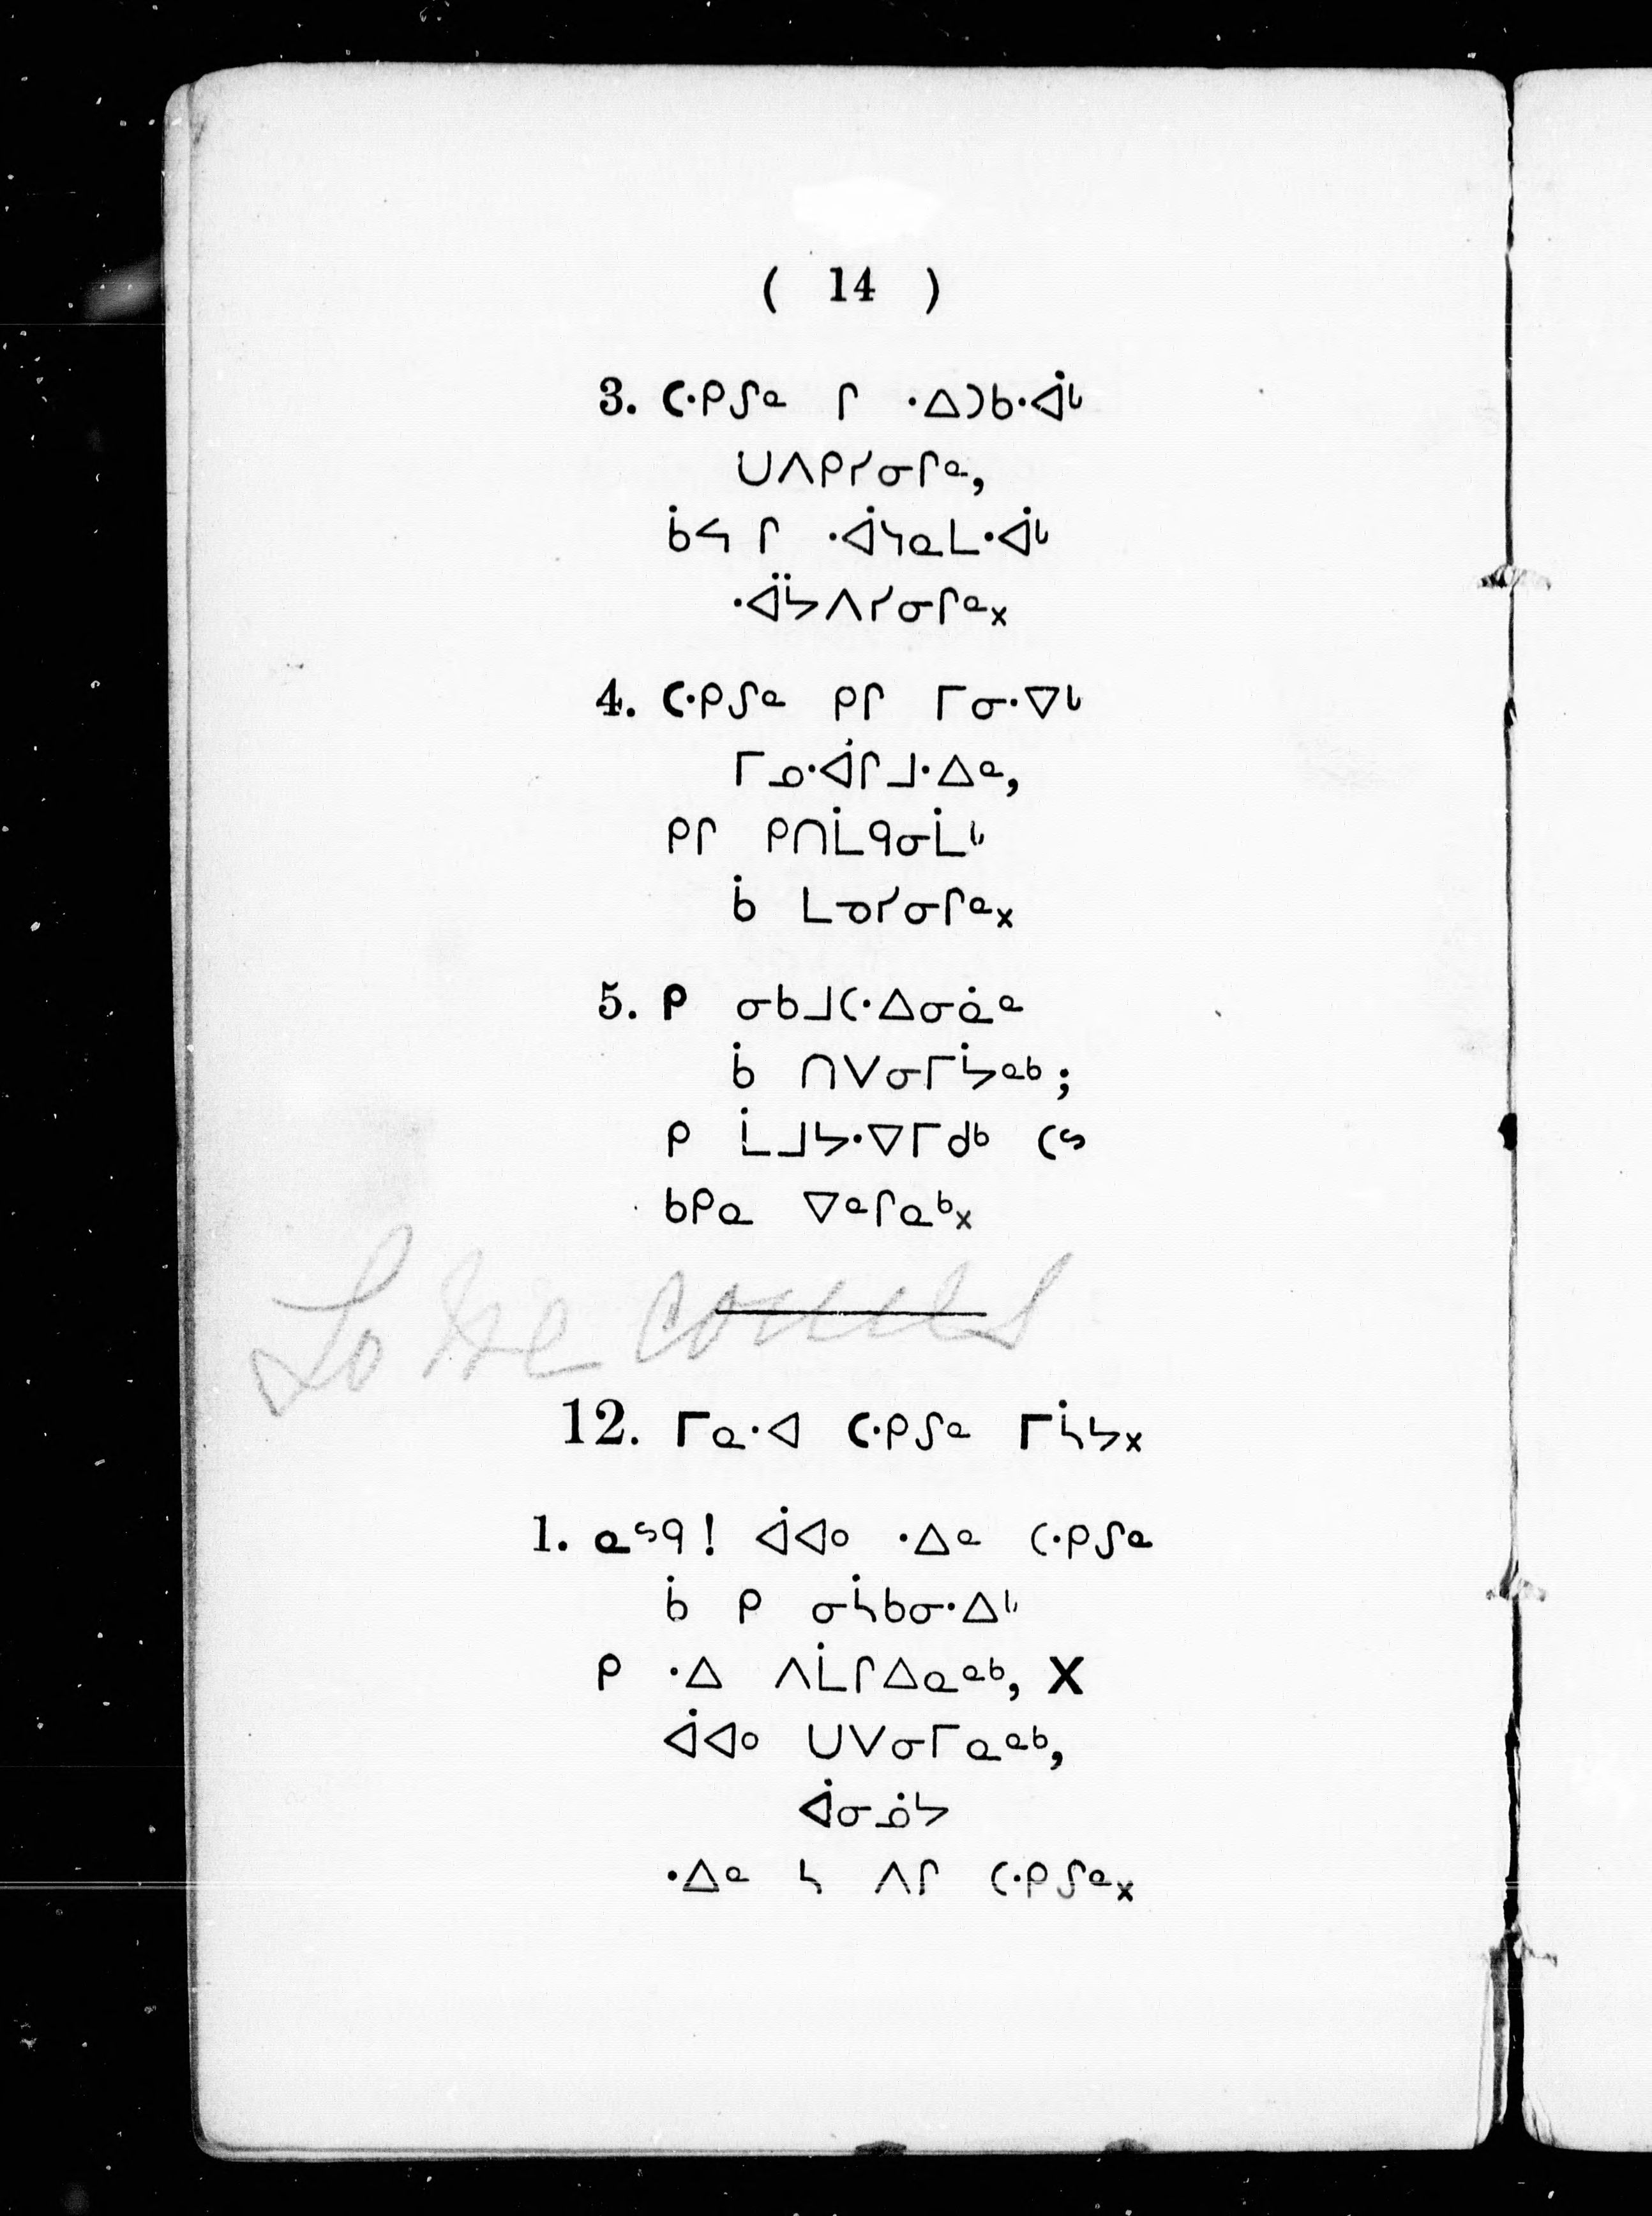 ( 14 )
3. ᑕᐧᑭᔑᓐ ᒋ ᐧᐃᑐᑲᐧᐋᒡ
ᑌᐱᑭᓯᓂᒋᓐ,
ᑳᓴ ᒋ ᐧᐋᓭᓇᒪᐧᐋᒡ
ᐧᐋᔭᐱᓯᓂᒋᓐ᙮
4. ᑕᐧᑭᔑᓐ ᑭᒋ ᒥᓂᐧᐁᒡ
ᒥᓄᐧᐋᒋᒧᐧᐃᓐ,
ᑭᒋ ᑭᑎᒫᑫᓂᒫᒡ
ᑳ ᒪᓀᓯᓂᒋᓐ᙮
5. ᑭ ᓂᑲᒧᑕᐧᐃᓂᓈᓐ
ᑳ ᑎᐯᓂᒥᔮᓐᒃ;
ᑭ ᒫᒧᔭᐧᐁᒥᑯᒃ ᑕᔥ
ᑲᑭᓇ ᐁᓐᒋᓇᒃ᙮
Lo He comes
12. ᒥᓇᐧᐊ ᑕᐧᑭᔑᓐ ᒥᓵᔭ᙮
1. ᓇᔥᑫ! ᐋᐊᐤ ᐧᐃᓐ ᑕᐧᑭᔑᓐ
ᑳ ᑭ ᓂᓵᑲᓂᐧᐃᒡ
ᑭ ᐧᐃ ᐱᒫᒋᐃᓇᓐᒃ, X
ᐋᐊᐤ ᑌᐯᓂᒥᓇᓐᒃ,
ᐋᓂᓅᔭ
ᐧᐃᓐ ᓴ ᐱᒋ ᑕᐧᑭᔑᓐ᙮